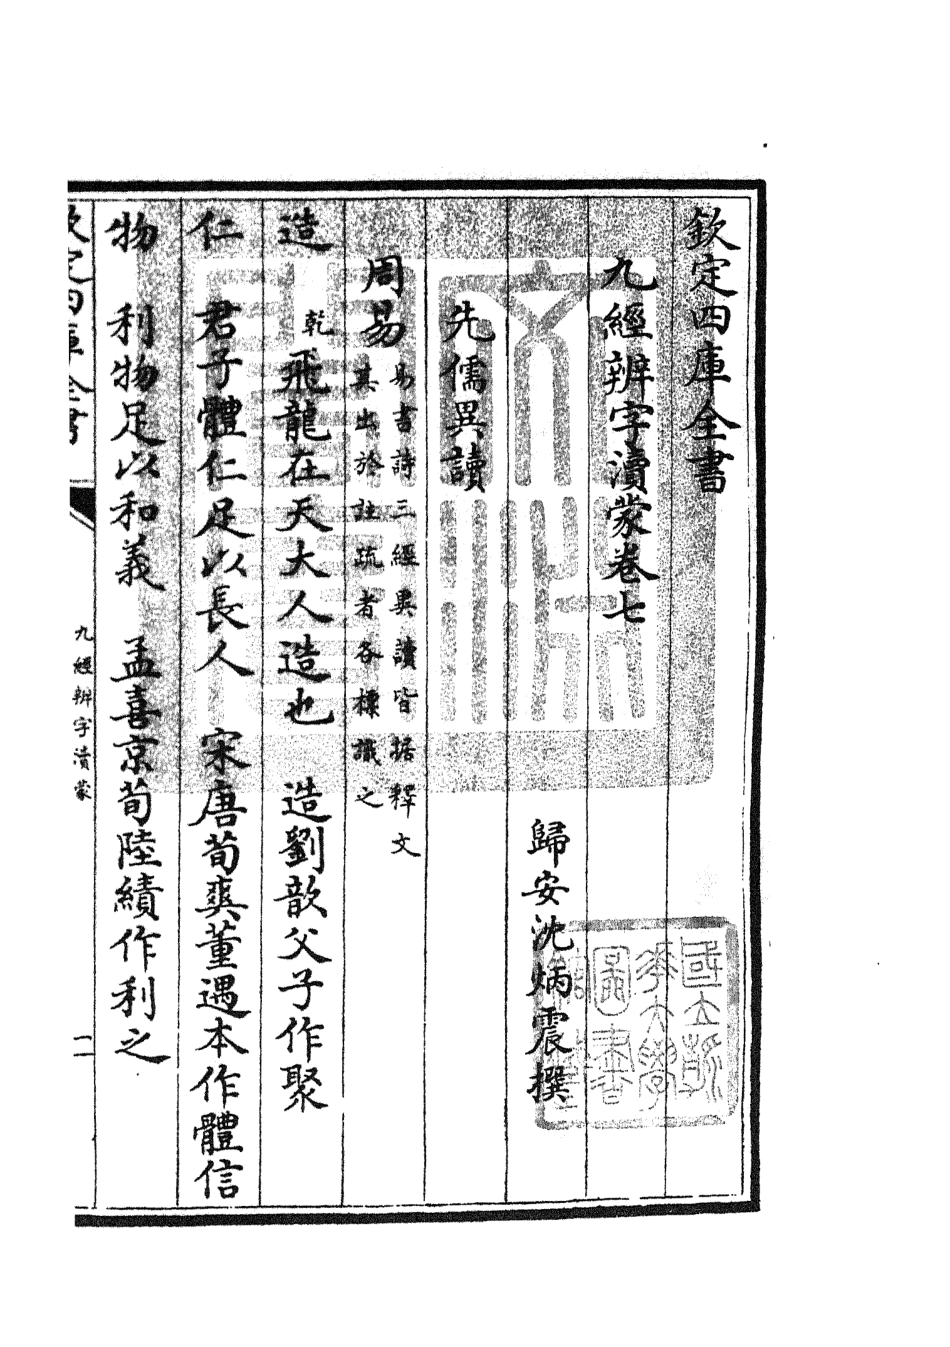 欽定四庫全書
九經辨字瀆蒙卷七
歸安沈炳震撰
先儒異讀
周易易書詩三經異讀皆据釋文
其出於註疏者各標識之
造 乾飛龍在天大人造也 造劉歆父子作聚
仁 君子體仁足以長人 宋唐荀爽董遇本作體信
物 利物足以和義 孟喜京荀陸績作利之
欽定四庫全書
九經辨字瀆蒙
國立清華大學
圖書